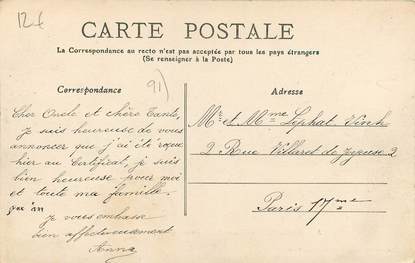 12 f
CARTE POSTALE
La Correspondance au recto n'est pas acceptée par tous les pays étrangers
(Se renseigner à la Poste)
Correspondance
91)
Adresse
Cher Oncle et chère Tante,
je suis heureuse de vous
annoncer que j'ai été reçue
hier au Certificat, je suis
bien heureuse pour moi
et toute ma famille.
Je vous embrasse
bien affectueusement
Anna
Mr et Mme
2 Rue Villaret de Joyeuse 2
Paris 17me